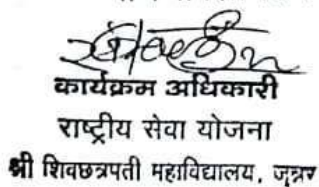 कार्यक्रम अधिकारी
राष्ट्रीय सेवा योजना
श्री शिवछत्रपती महाविद्यालय, जुन्नर